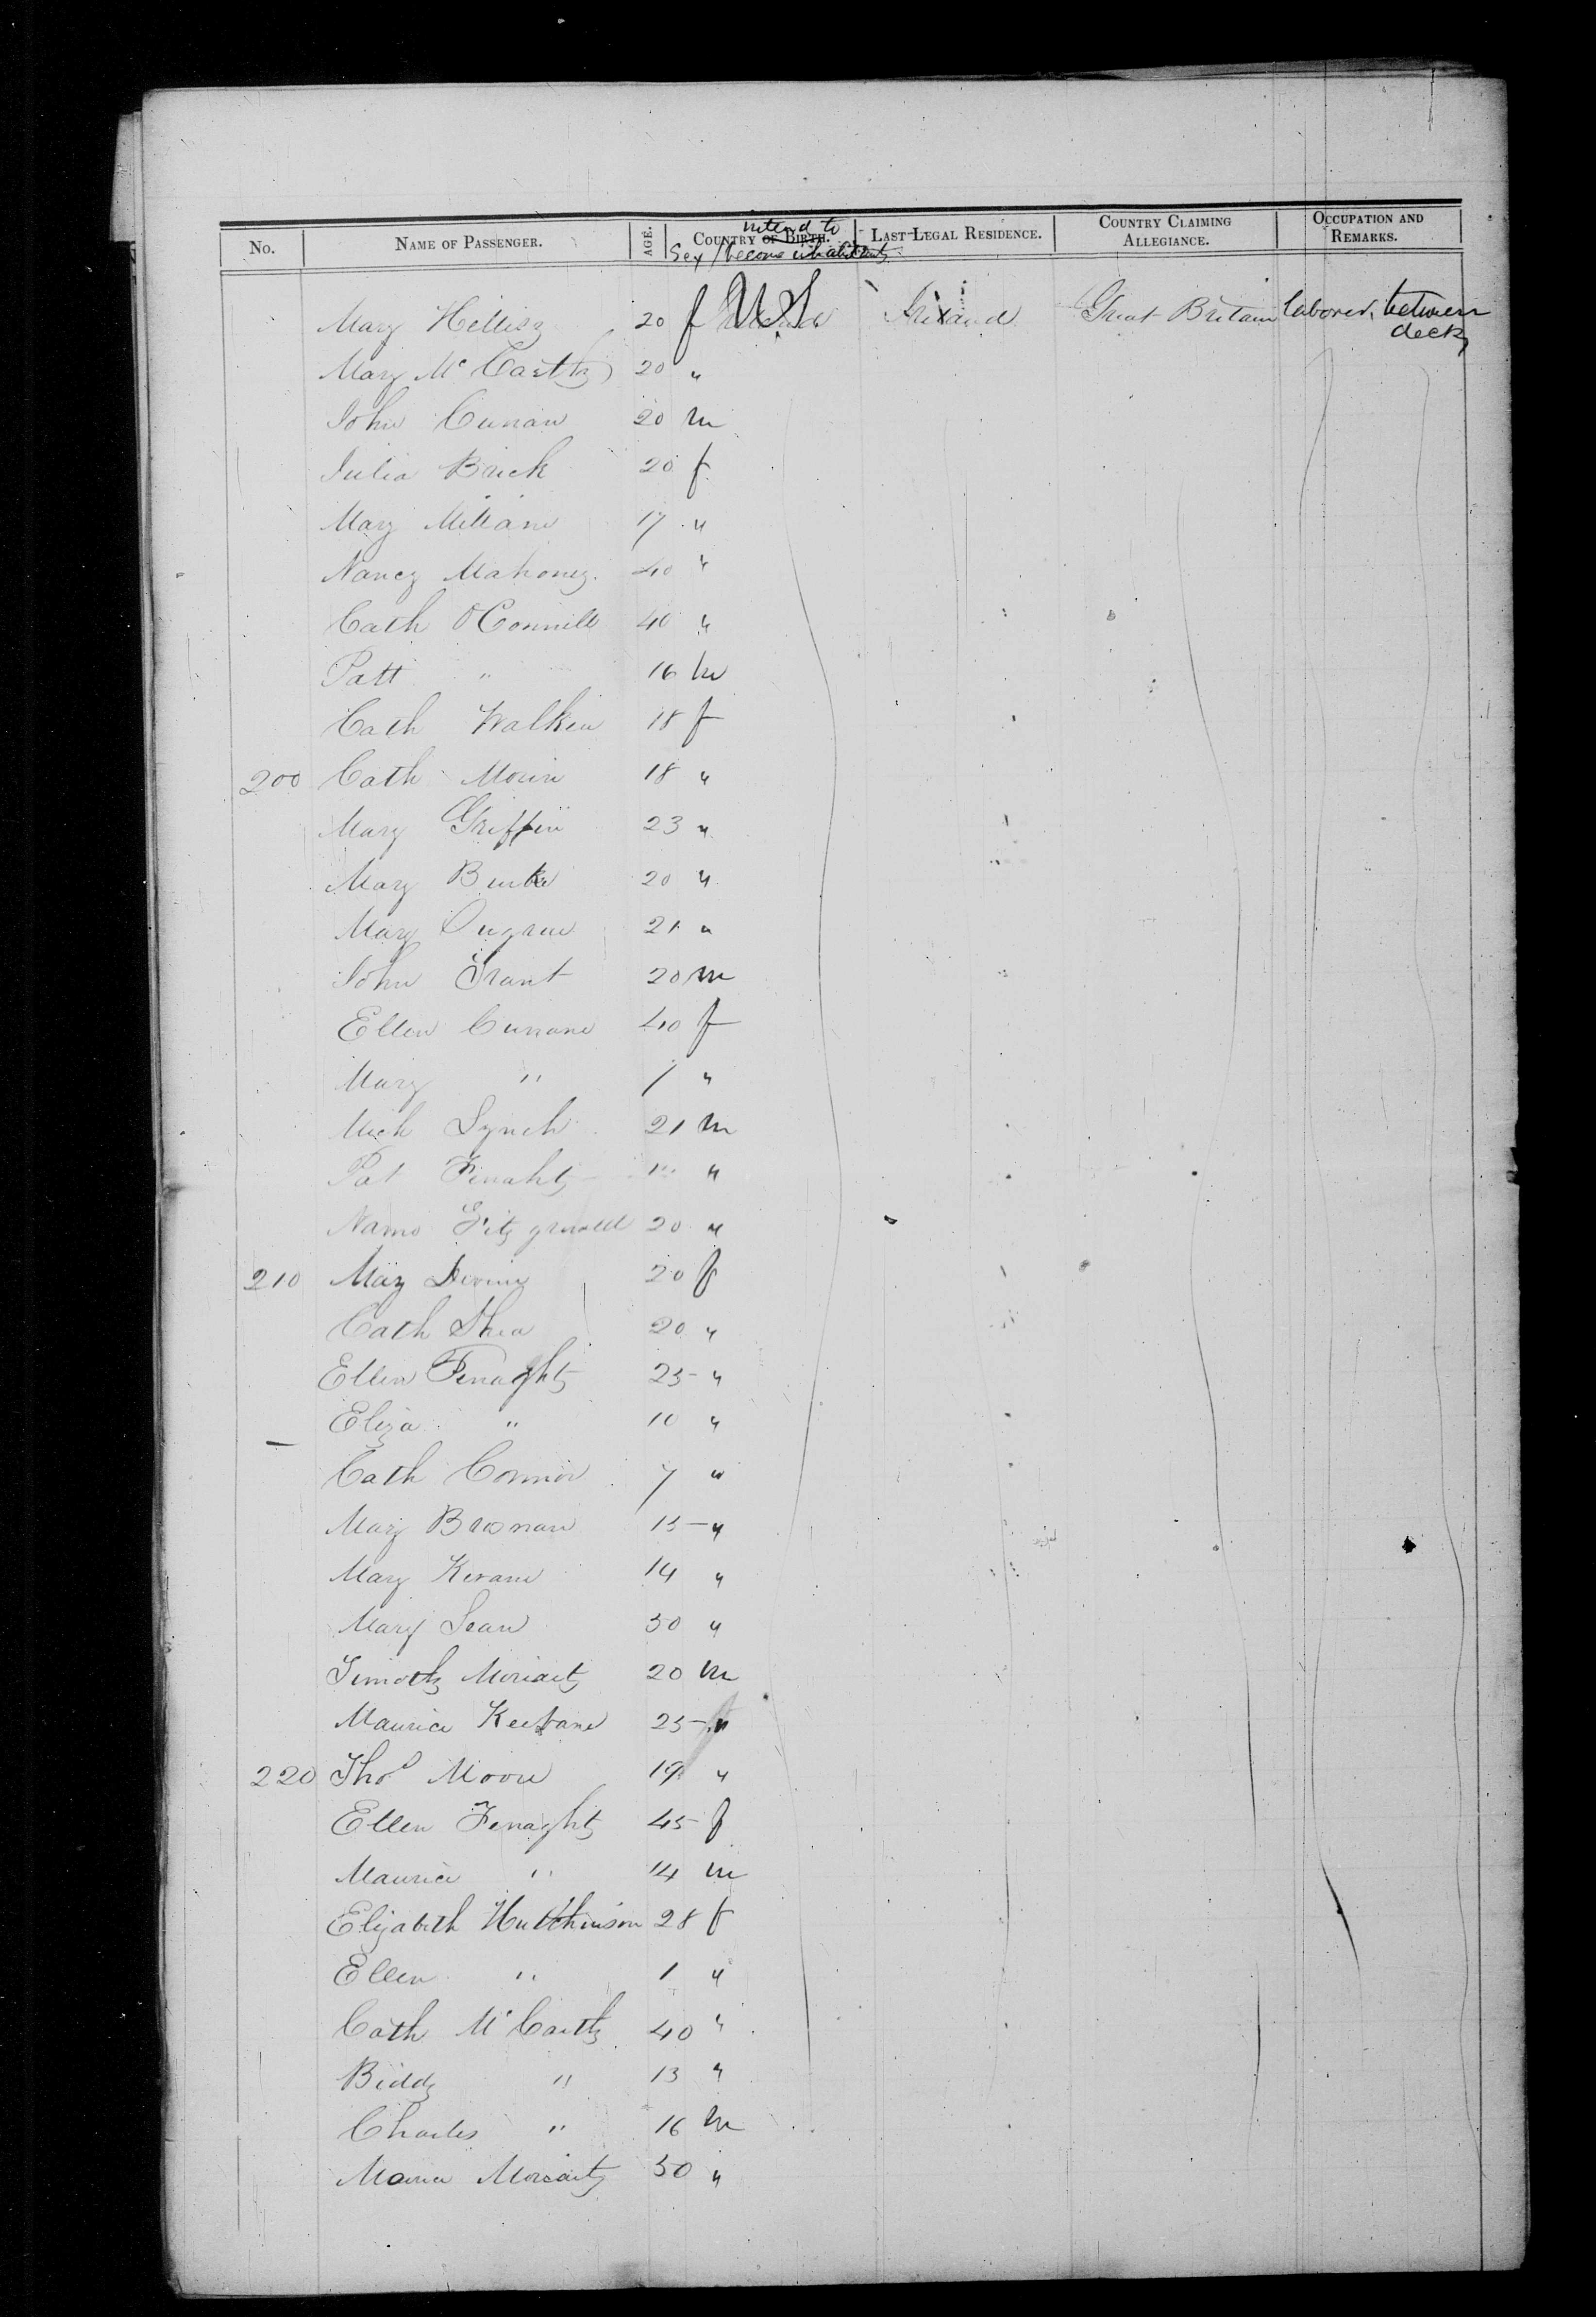 No. NAME OF PASSENGER. AGE. Sex COUNTRY OF BIRTH. intend to become inhabitants LAST LEGAL RESIDENCE. COUNTRY CLAIMING ALLEGIANCE. OCCUPATION AND REMARKS.
Mary 20 f U S Ireland Great Britain laborer, between decks
Mary Mc Carthy 20 "
John Cunan 20 m
Julia Brick 20 f
Mary Millane 17 "
Nancy Mahoney. 40 "
Cath O'Connell 40 "
Patt " 16 m
Cath 18 f
200 Cath 18 "
Mary Griffin 23 "
Mary Burke 20 "
Mary 21 "
John Grant 20 m
Ellen Currane 40 f
Mary " 1 "
Mich Lynch 21 m
Pat Finahty "
Fitzgerald 20 "
210 Mary Devine 20 f
Cath Shea 20 "
Ellen Fenaghty 25 "
Eliza " 10 "
Cath Connor 7 "
Mary Brosnan 15 "
Mary Kevane 14 "
Mary 50 "
Timothy Moriarty 20 m
Maurice 25 "
220 Thos Moore 19 "
Ellen Fenaghty 45 f
Maurice " 14 m
Elizabeth Hutchinson 28 f
Ellen " 1 "
Cath McCarthy 40 "
Biddy " 13 "
Charles " 16 m
Moriarty 50 "